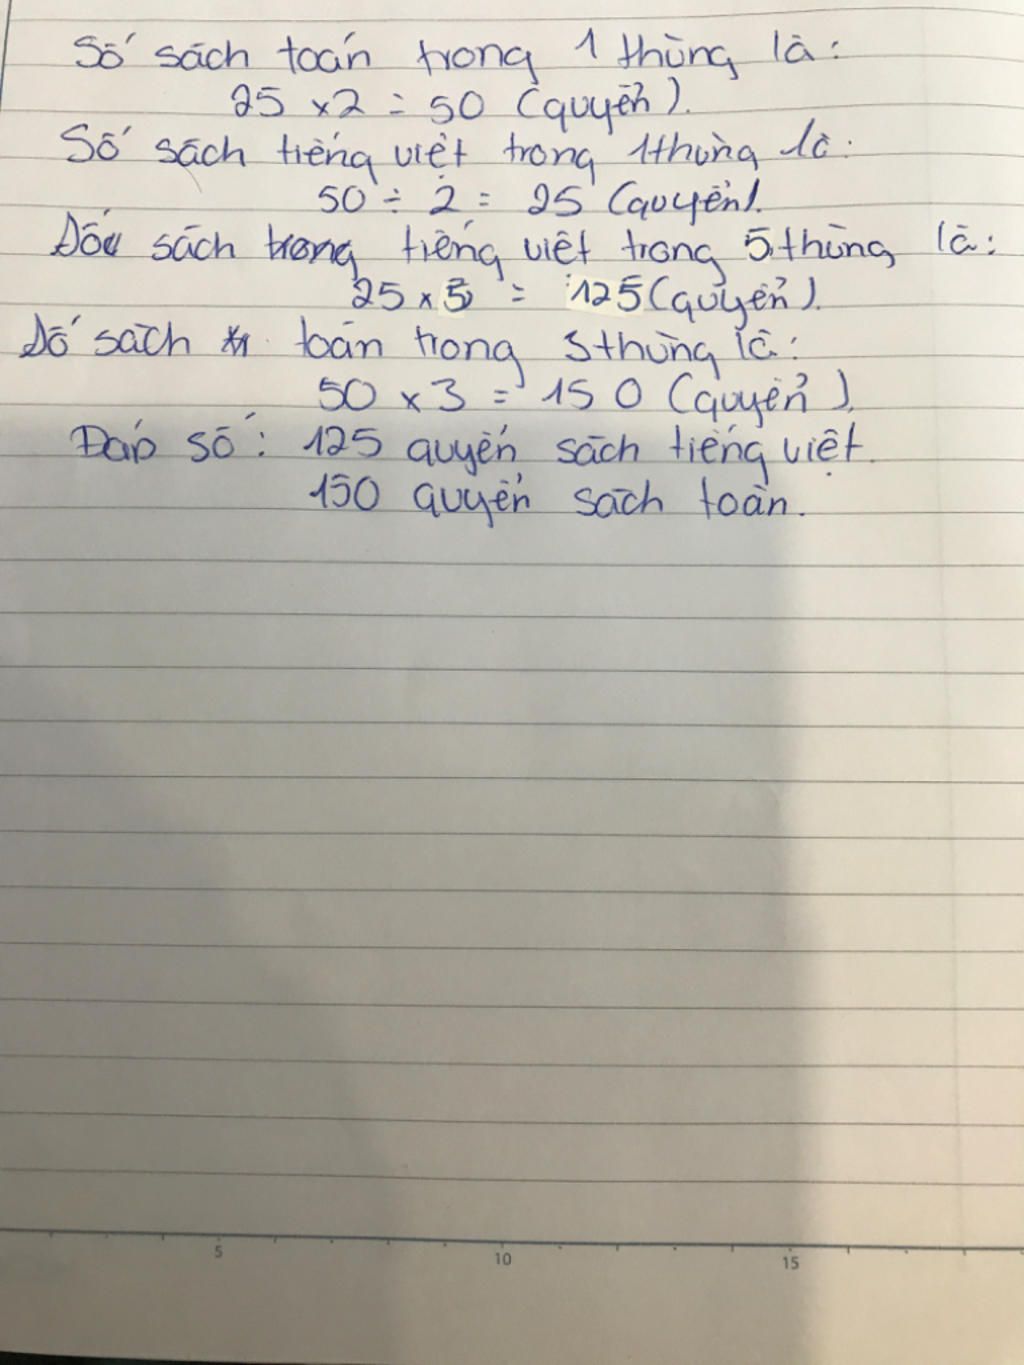 Số sách toán trong 1 thùng là:
25 x 2 = 50 (quyển).
Số sách tiếng việt trong 1 thùng là:
50 ÷ 2 = 25 (quyển).
Số sách trong tiếng việt trong 5 thùng là:
25 x 5 = 125 (quyển).
Số sách toán trong 3 thùng là:
50 x 3 = 150 (quyển).
Đáp số: 125 quyển sách tiếng việt.
150 quyển sách toán.
5 10 15